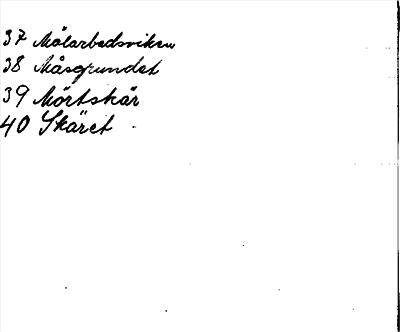 37 Mälarbadsviken
38 Måsgrundet
39 Mörtskär
40 Skäret